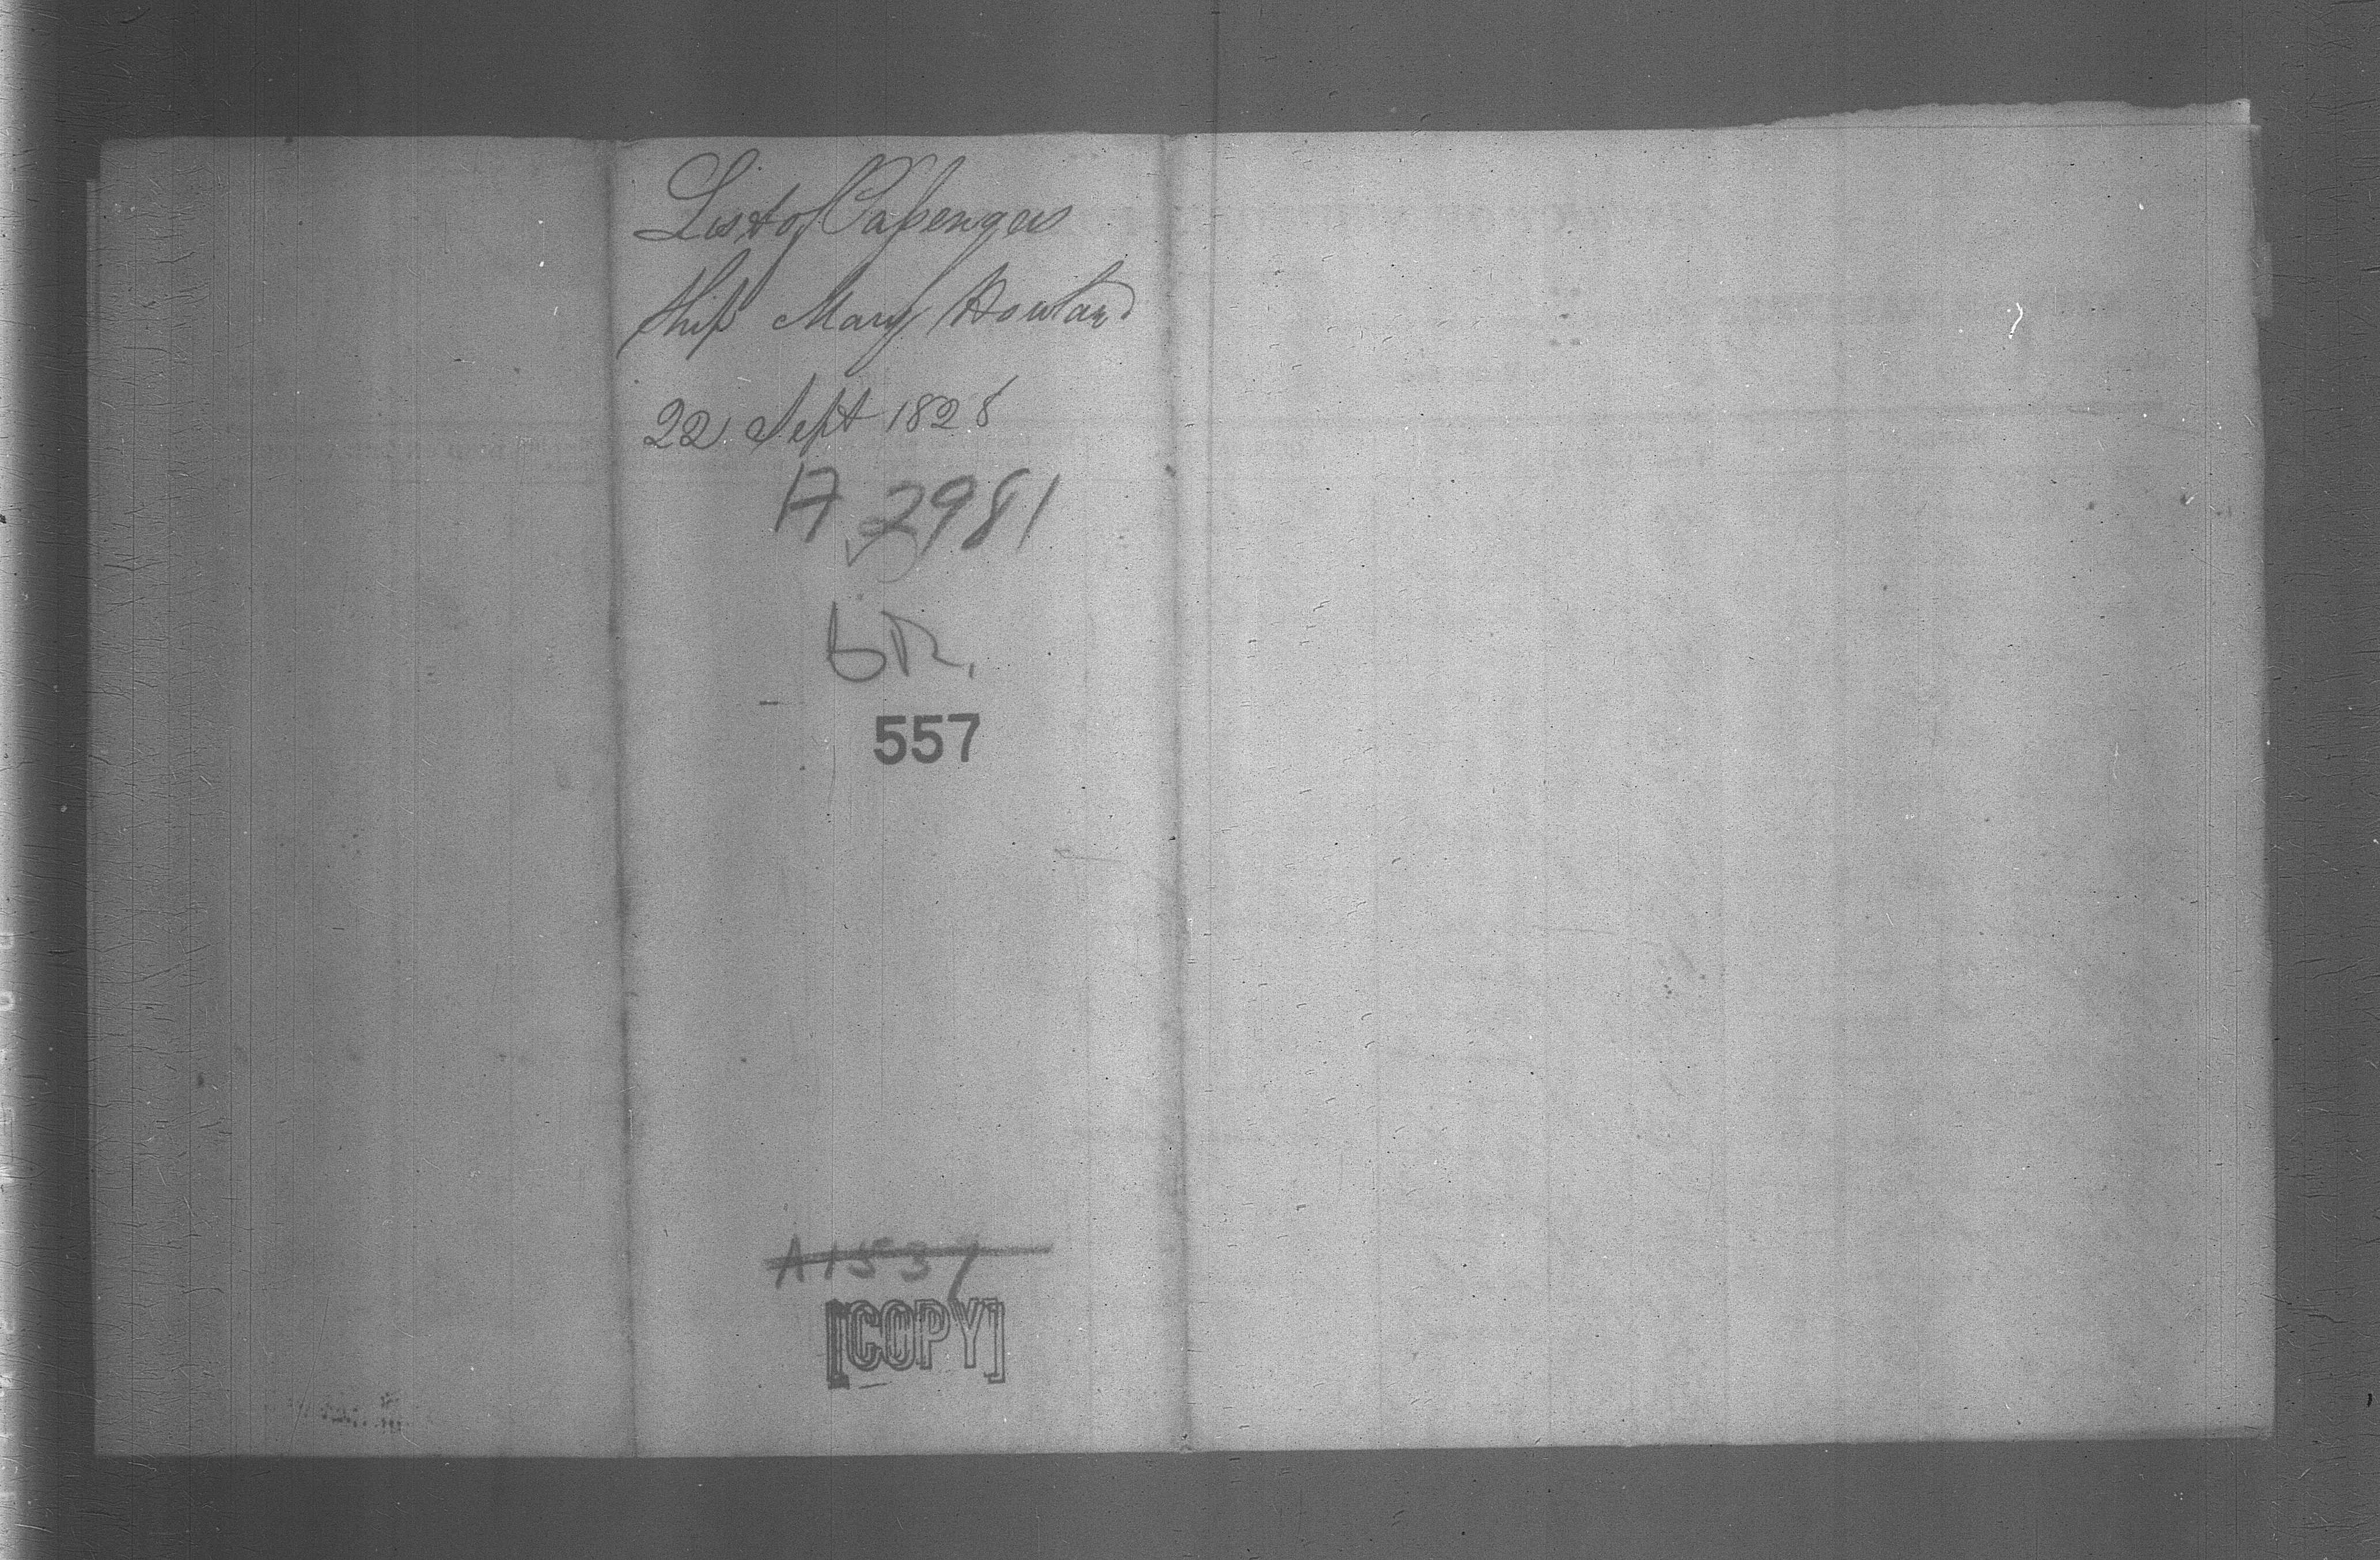 List of Passengers
Ship Mary Howland
22 Sept 1828
A 2981
557
A 1537
[COPY]